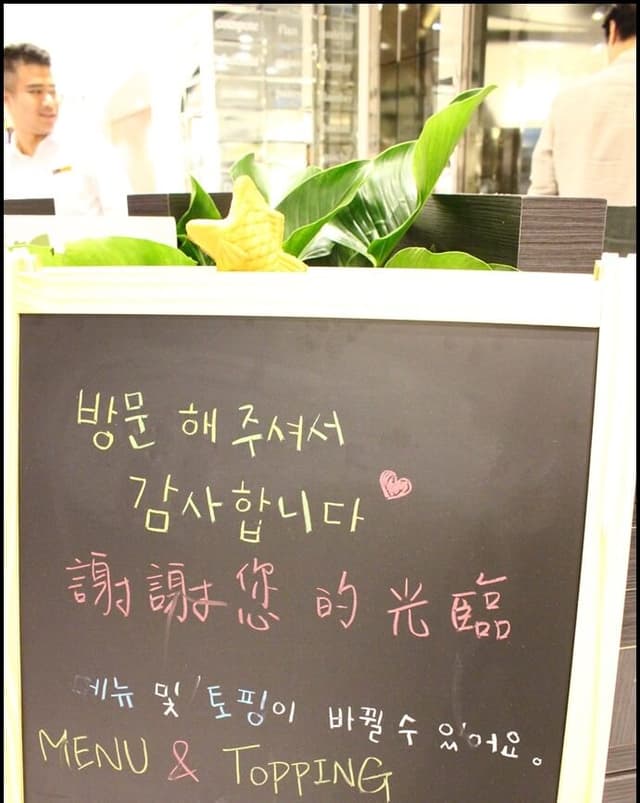 방문 해 주셔서
감사합니다
謝謝您的光臨
메뉴 및 토핑이 바뀔 수 있어요.
MENU & TOPPING